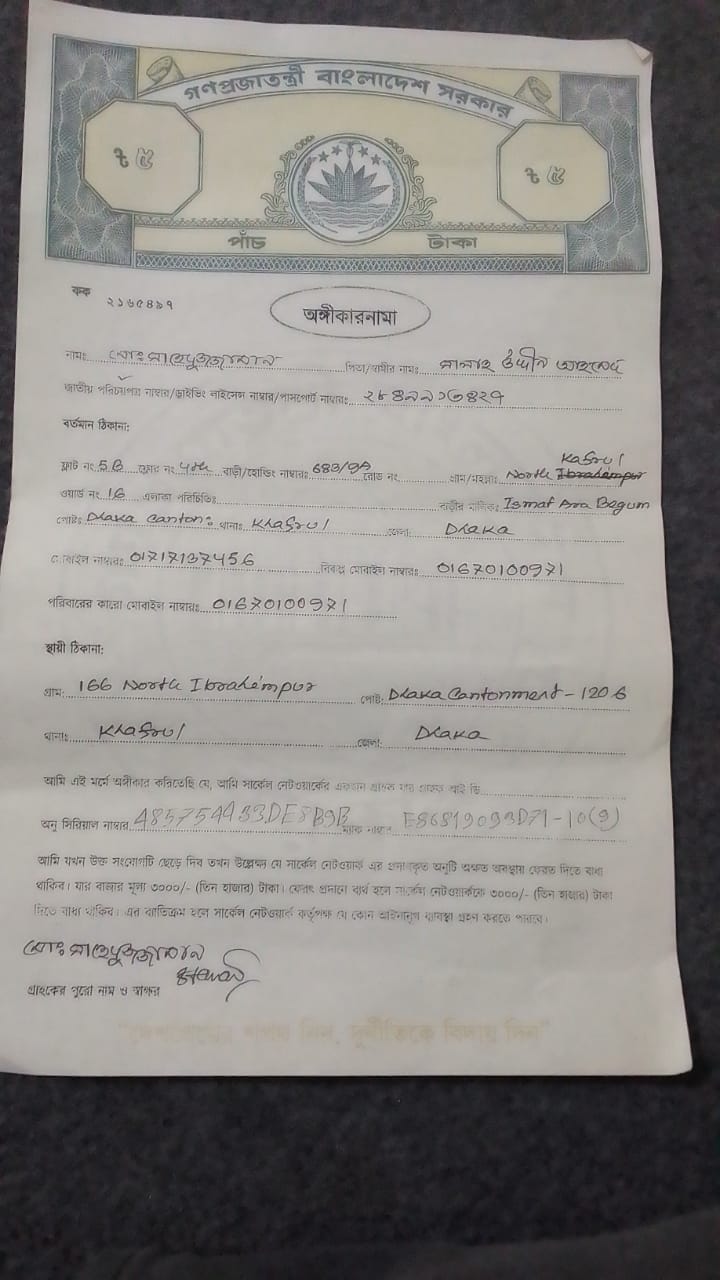 গণপ্রজাতন্ত্রী বাংলাদেশ সরকার
৳ ৫ ৳ ৫
পাঁচ টাকা
কক ২১৬৫৪৯৭
অঙ্গীকারনামা
নামঃ মোঃ পিতা/স্বামীর নামঃ উদ্দীন আহমেদ
জাতীয় পরিচয়পত্র নাম্বার/ড্রাইভিং লাইসেন্স নাম্বার/পাসপোর্ট নাম্বারঃ
বর্তমান ঠিকানা:
Kafrul
ফ্লাট নং 5B ফ্লোর নং 4th বাড়ী/হোল্ডিং নাম্বারঃ 683/9A রোড নং গ্রাম/মহল্লাঃ North Ibrahimpur
ওয়ার্ড নং 16 এলাকা পরিচিতিঃ বাড়ীর মালিকঃ Ismat Ara Begum
পোষ্টঃ Dhaka Canton: থানাঃ Khafrul জেলা: Dhaka
মোবাইল নাম্বারঃ 01717137456 বিকল্প মোবাইল নাম্বারঃ 01670100971
পরিবারের কারো মোবাইল নাম্বারঃ 01670100971
স্থায়ী ঠিকানা:
গ্রাম: 166 North Ibrahimpur পোষ্ট: Dhaka Cantonment - 1206
থানাঃ Khafrul জেলা: Dhaka
আমি এই মর্মে অঙ্গীকার করিতেছি যে, আমি সার্কেল নেটওয়ার্কের একজন গ্রাহক যার গ্রাহক আই ডি
অনু সিরিয়াল নাম্বার 485754433DE8B9B ম্যাক নাম্বার E86819093D71-10(9)
আমি যখন উক্ত সংযোগটি ছেড়ে দিব তখন উল্লেক্ষ যে সার্কেল নেটওয়ার্ক এর প্রদানকৃত অনুটি অক্ষত অবস্থায় ফেরত দিতে বাধ্য
থাকিব। যার বাজার মূল্য ৩০০০/- (তিন হাজার) টাকা। ফেরৎ প্রদানে ব্যর্থ হলে সার্কেল নেটওয়ার্ককে ৩০০০/- (তিন হাজার) টাকা
দিতে বাধ্য থাকিব। এর ব্যতিক্রম হলে সার্কেল নেটওয়ার্ক কর্তৃপক্ষ যে কোন আইনানুগ ব্যবস্থা গ্রহণ করতে পারবে।
মোঃ
গ্রাহকের পুরো নাম ও স্বাক্ষর